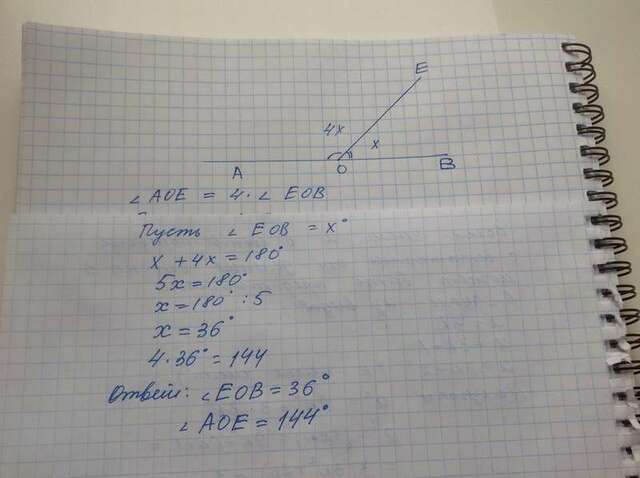 E
4x
x
A O B
∠ AOE = 4·∠ EOB
Пусть ∠ EOB = x°
x + 4x = 180°
5x = 180°
x = 180° : 5
x = 36°
4·36° = 144
Ответ: ∠EOB = 36°
∠ AOE = 144°